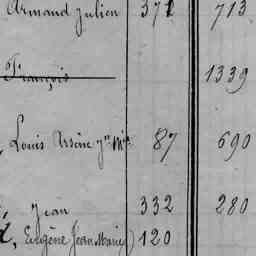 Armand Julien 371 713
François 1339
Louis Arsène 87 690
Jean 332 280
Eugène Jean Marie) 120